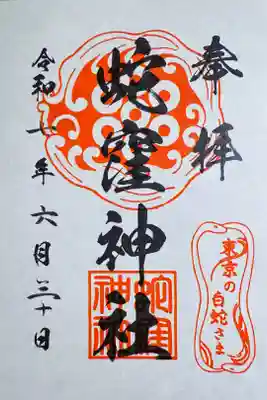 奉拝
蛇窪神社
蛇窪神社
東京の
白蛇さま
令和七年六月三十日